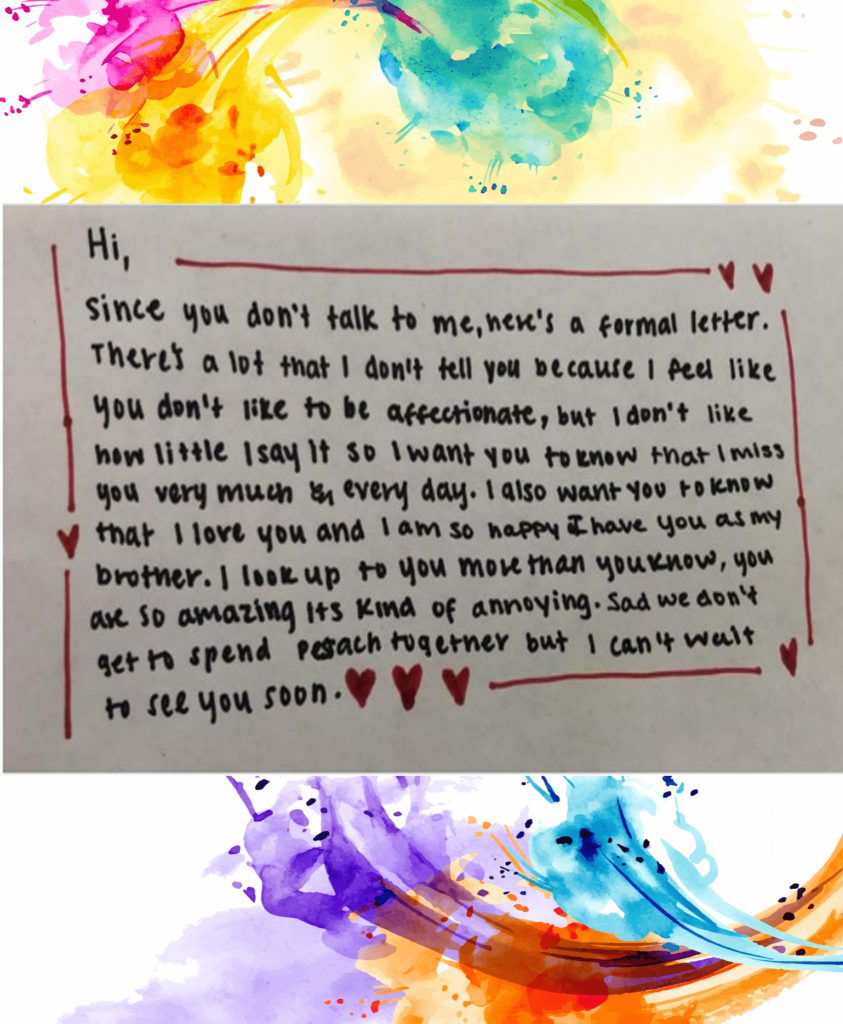 Hi,
Since you don't talk to me, here's a formal letter.
There's a lot that I don't tell you because I feel like
you don't like to be affectionate, but I don't like
how little I say it so I want you to know that I miss
you very much & every day. I also want you to know
that I love you and I am so happy I have you as my
brother. I look up to you more than you know, you
are so amazing its kind of annoying. Sad we don't
get to spend Pesach together but I can't wait
to see you soon.